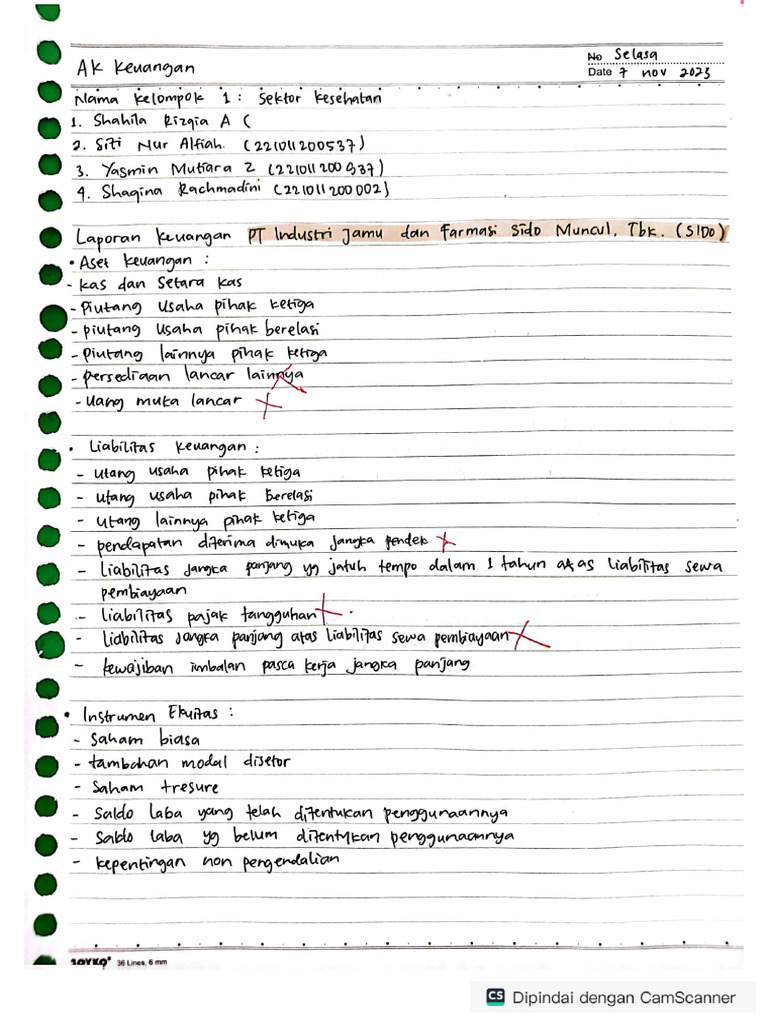 AK Keuangan
No Selasa
Date 7 nov 2023
Nama Kelompok 1 : Sektor Kesehatan
1. Shahila Rizqia A (
2. Siti Nur Alfiah. (221011200537)
3. Yasmin Mutiara Z (221011200937)
4. Shaqina Rachmadini (221011200002)
Laporan Keuangan PT Industri Jamu dan Farmasi Sido Muncul, Tbk. (SIDO)
• Aset Keuangan :
- Kas dan Setara Kas
- Piutang Usaha pihak ketiga
- piutang Usaha pihak berelasi
- Piutang lainnya pihak ketiga
- persediaan lancar lainnya
- Uang muka lancar
• Liabilitas Keuangan :
- Utang usaha pihak ketiga
- Utang usaha pihak berelasi
- Utang lainnya pihak ketiga
- pendapatan diterima dimuka jangka pendek
- Liabilitas Jangka panjang yg jatuh tempo dalam 1 tahun atas liabilitas sewa
pembiayaan
- Liabilitas pajak tangguhan
- Liabilitas Jangka panjang atas liabilitas sewa pembiayaan
- kewajiban imbalan pasca kerja jangka panjang
• Instrumen Ekuitas :
- Saham biasa
- tambahan modal disetor
- Saham tresure
- Saldo laba yang telah ditentukan penggunaannya
- Saldo laba yg belum ditentukan penggunaannya
- kepentingan non pengendalian
JOYKO 36 Lines, 6 mm
CS Dipindai dengan CamScanner